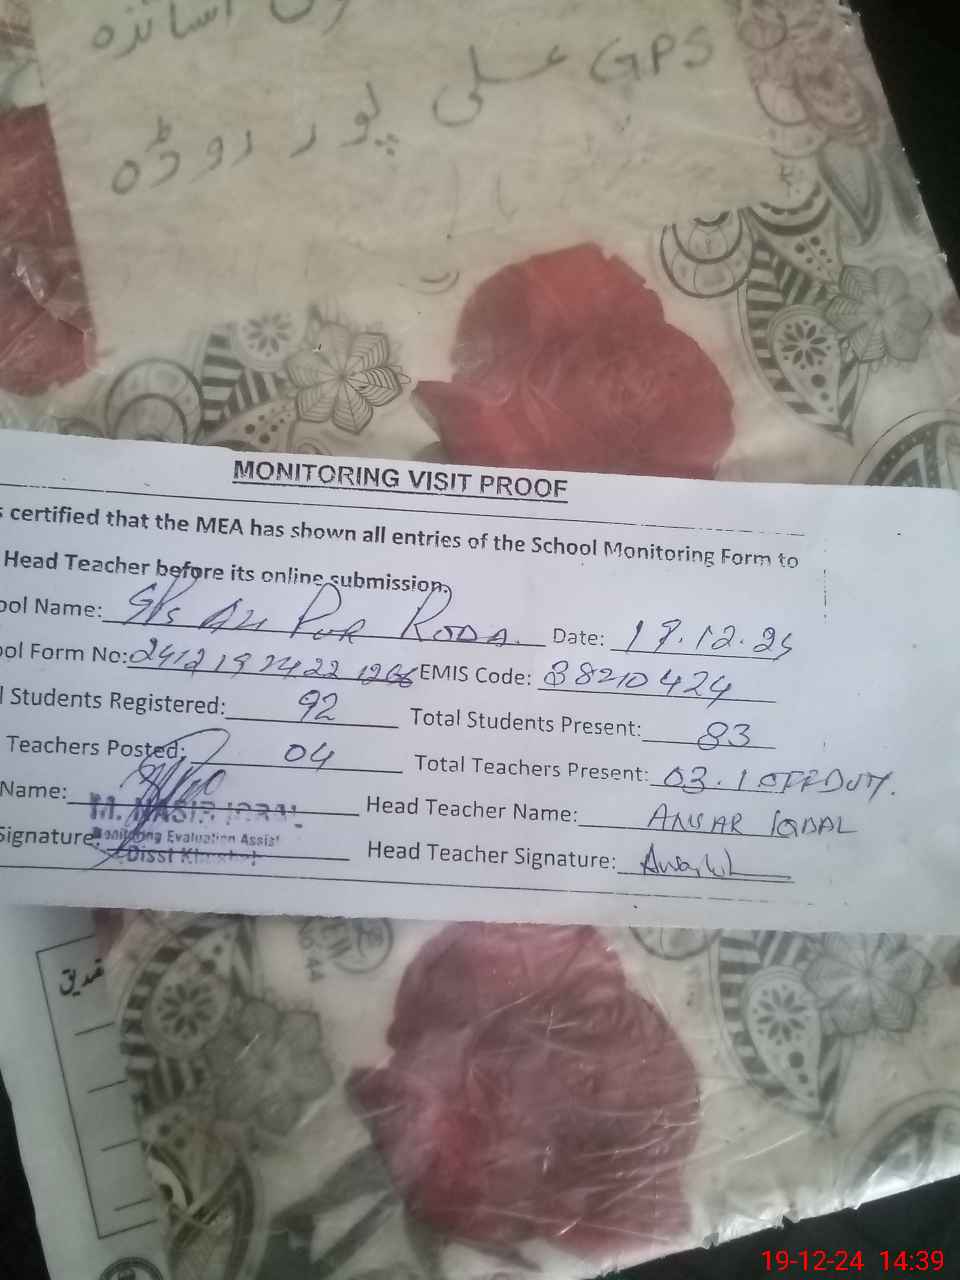 اساتذہ
GPS علی پور روڈہ
MONITORING VISIT PROOF
certified that the MEA has shown all entries of the School Monitoring Form to
Head Teacher before its online submission.
ool Name: GPS ALI PUR RODA. Date: 19.12.24
ool Form No: EMIS Code: 38210424
l Students Registered: 92 Total Students Present: 83
Teachers Posted: 04 Total Teachers Present: 03. 1 OFFDUTY.
Name: M. NASIR IQBAL Head Teacher Name: ANSAR IQBAL
Monitoring Evaluation Assist
Signature: Disst Khushab Head Teacher Signature:
19-12-24 14:39